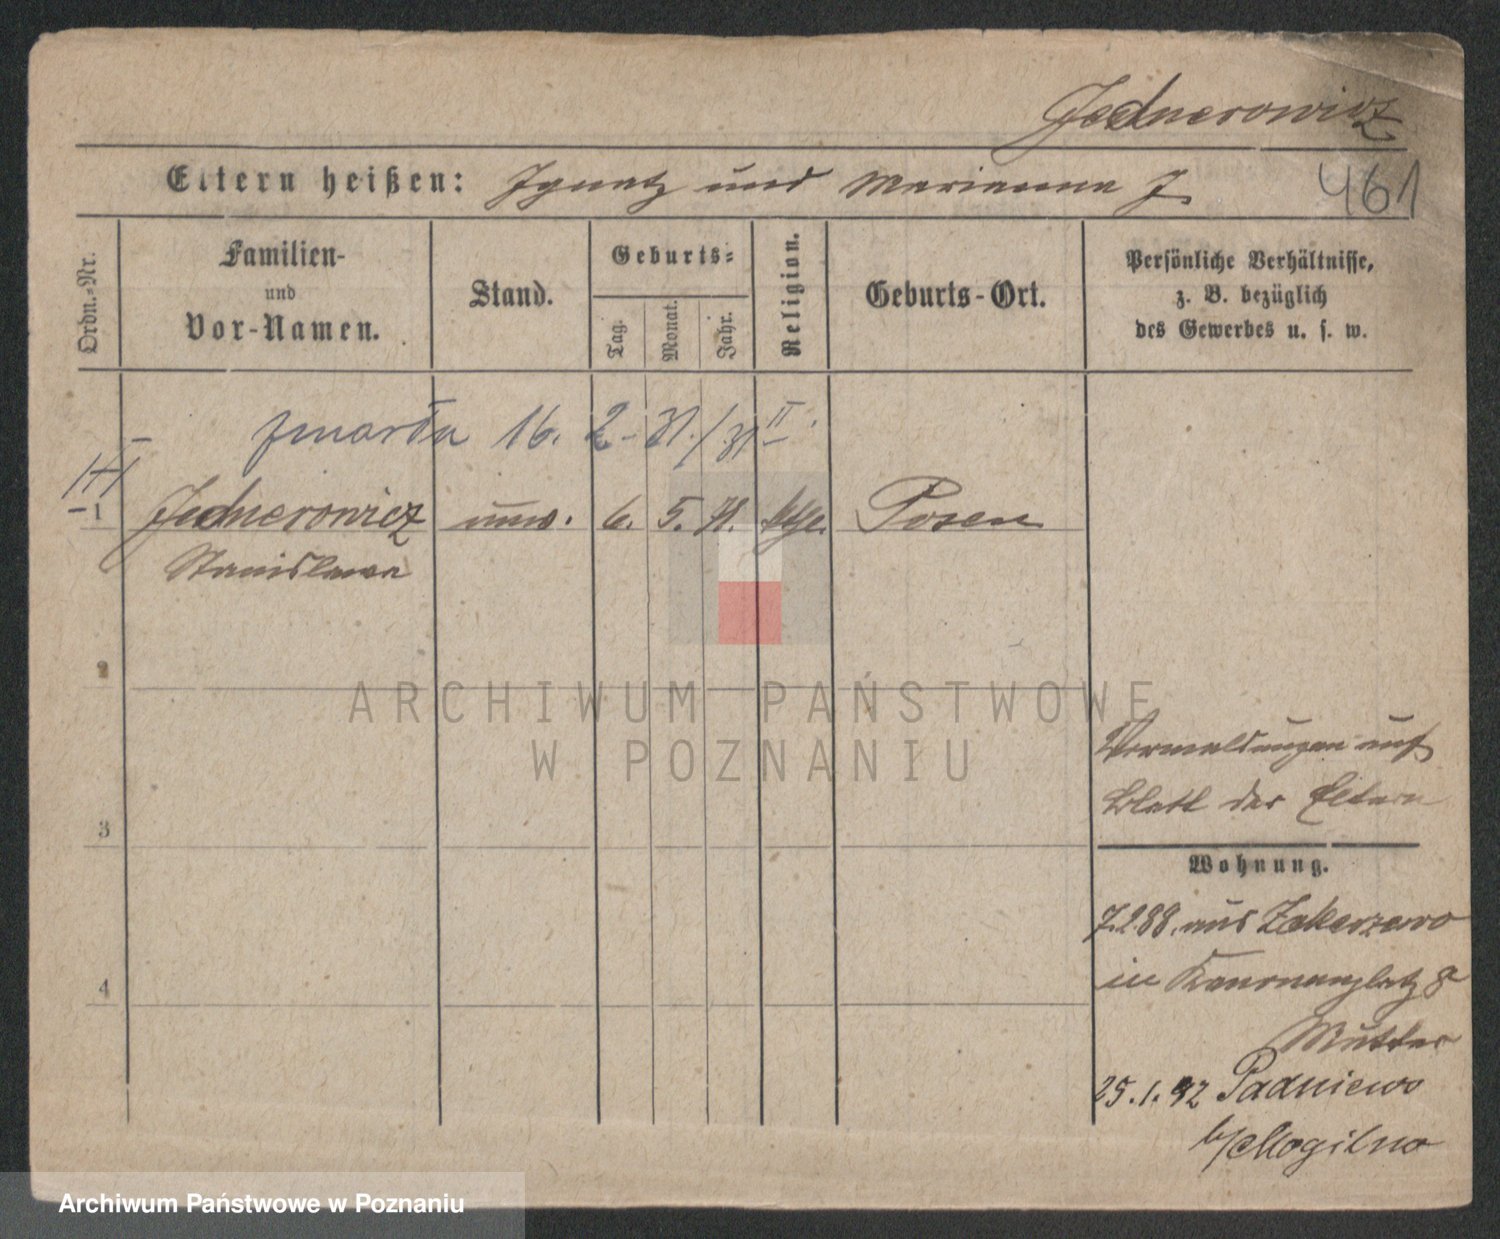 Jednerowicz
Eltern heißen: Ignatz und Marianna J.
461
Ordn.-Nr.
Familien-
und
Vor-Namen.
Stand.
Geburts-
Tag.
Monat.
Jahr.
Religion.
Geburts-Ort.
Persönliche Verhältnisse,
z. B. bezüglich
des Gewerbes u. s. w.
zmarła 16. 2 - 31. / 31 II.
1 Jednerowicz unv. 6. 5. 71. kth. Posen
Stanislawa
2
ARCHIWUM PAŃSTWOWE
W POZNANIU
Vermeldungen auf
Blatt der Eltern
3
Wohnung.
7.2.88. aus Zakerzewo
in Kanonenplatz 8
4
Mutter
25.1.92 Padniewo
b/Mogilno
Archiwum Państwowe w Poznaniu